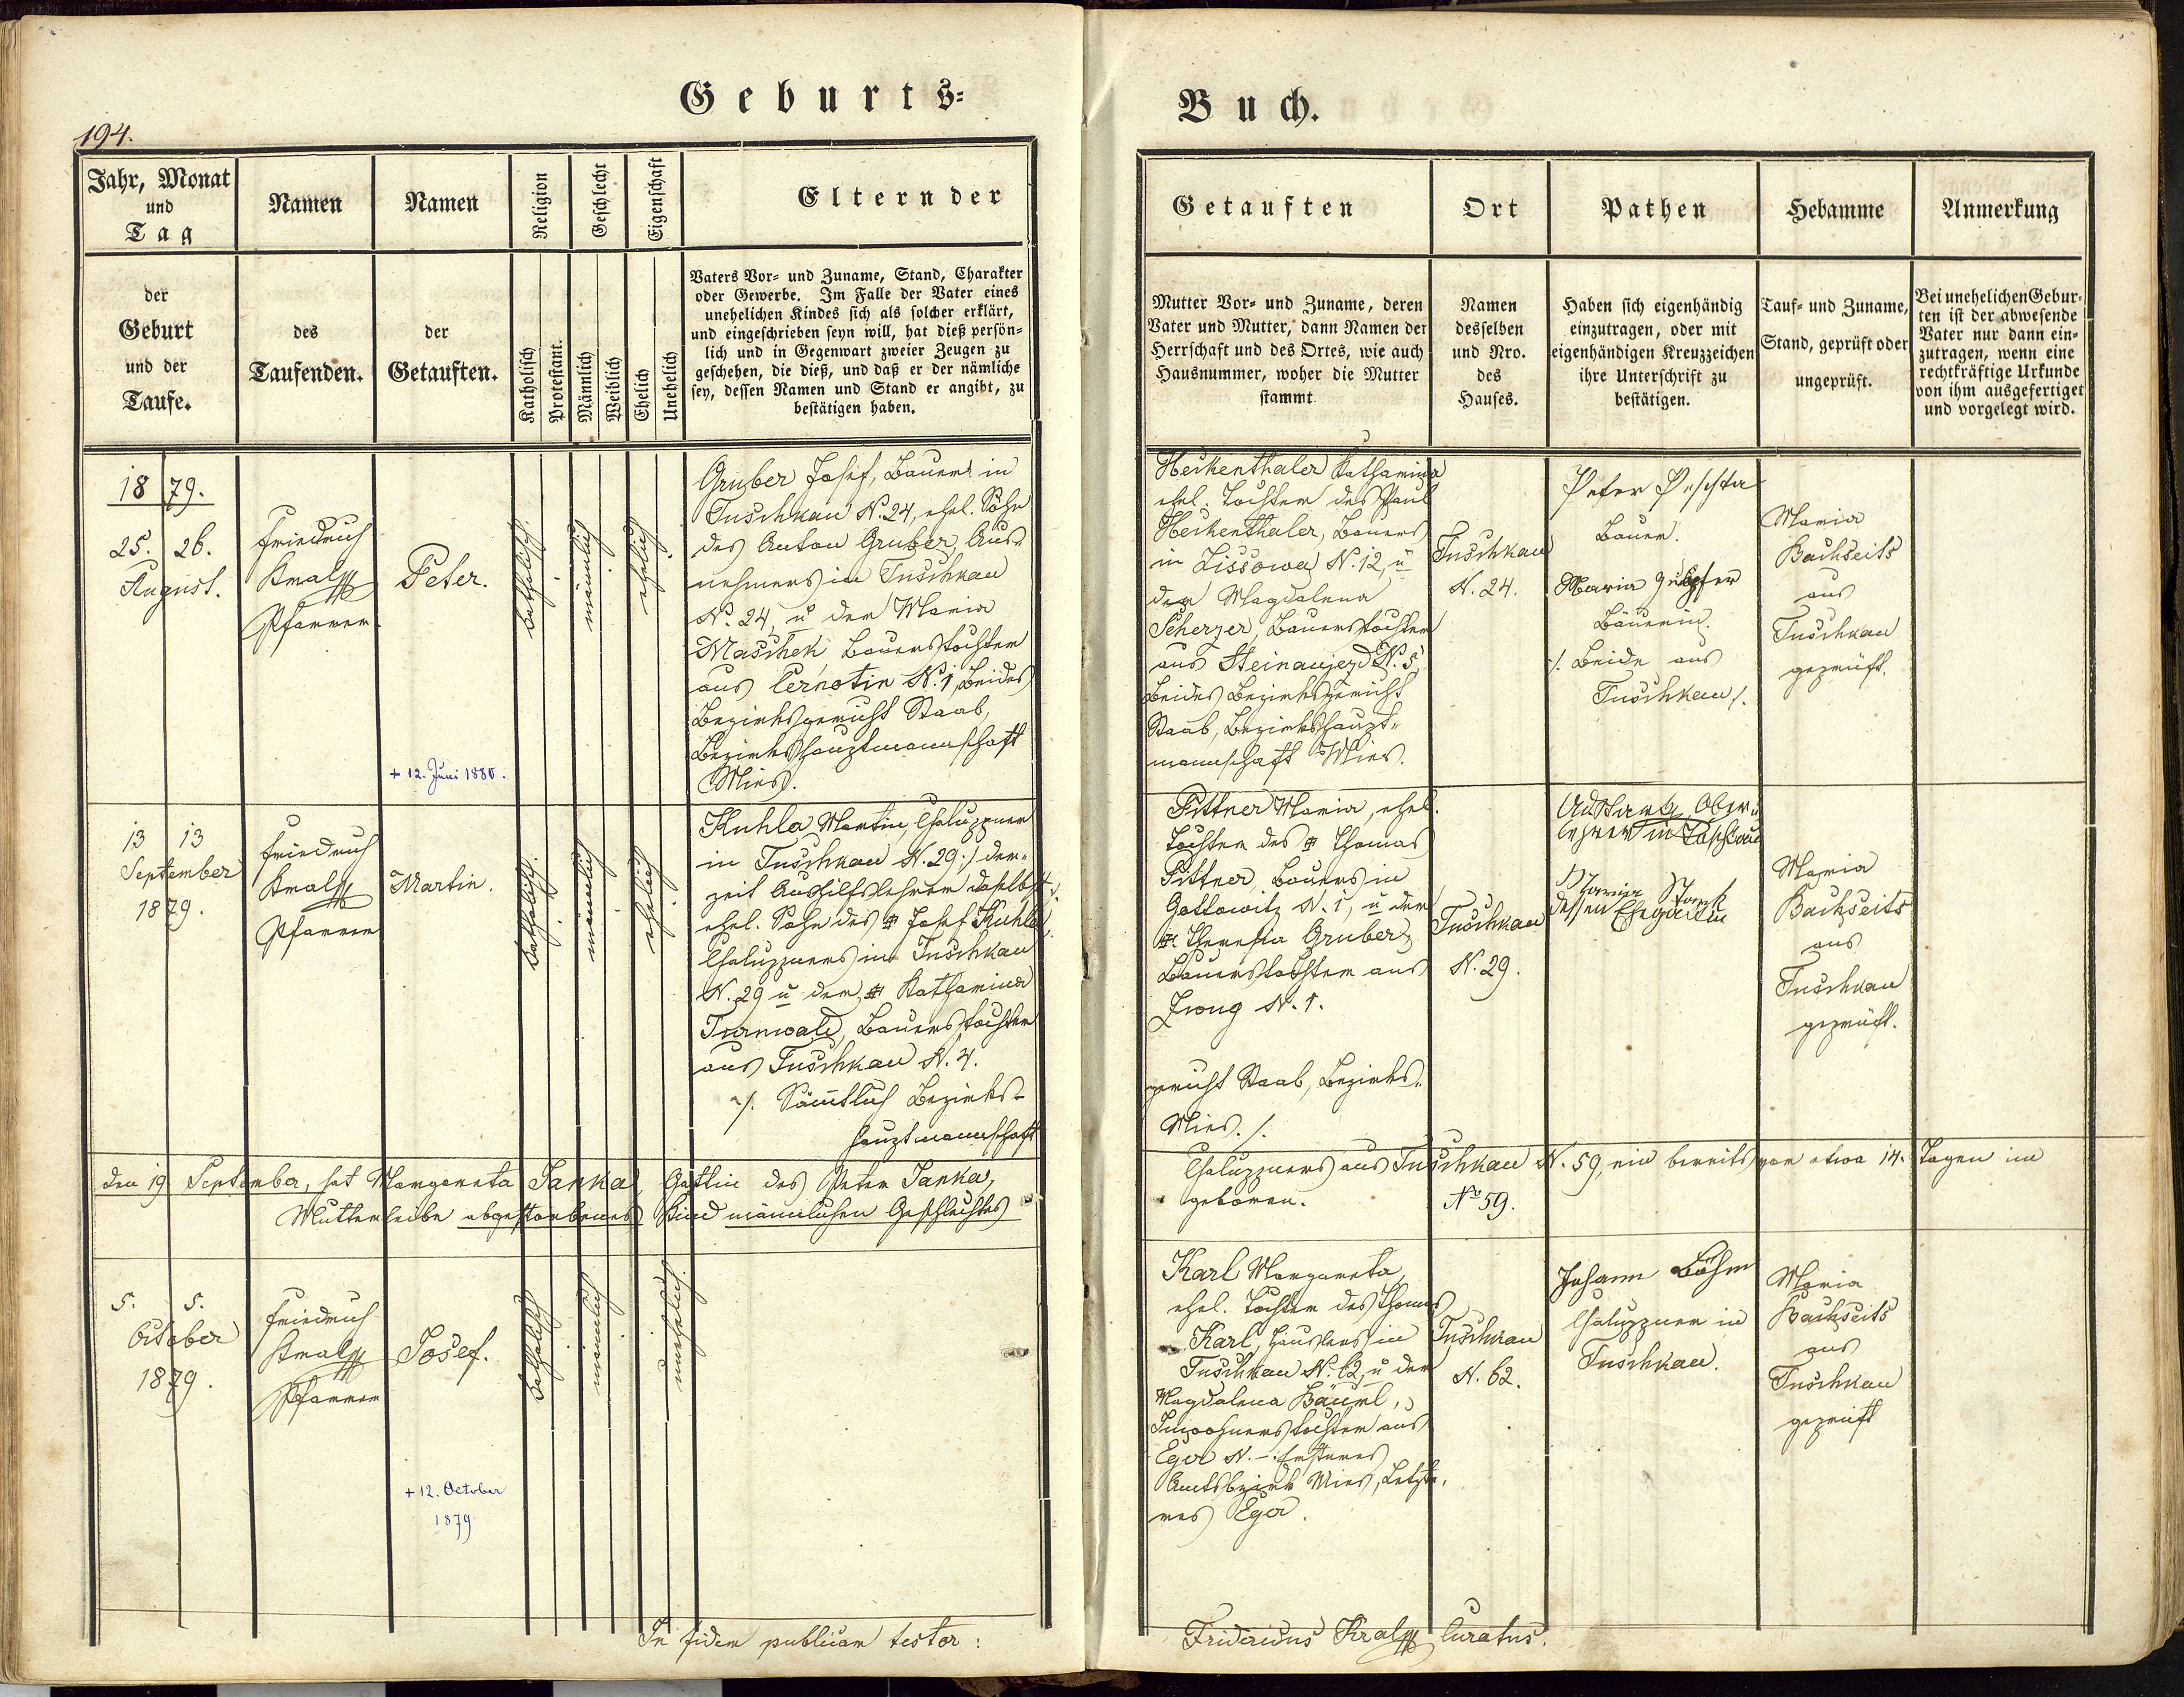 Geburts=
Buch.
194.
Jahr, Monat
und
Tag
Namen
Namen
Religion
Geschlecht
Eigenschaft
Eltern der
der
Geburt
und der
Taufe.
des
Taufenden.
der
Getauften.
Katholisch
Protestant.
Männlich
Weiblich
Ehelich
Unehelich
Vaters Vor- und Zuname, Stand, Charakter
oder Gewerbe. Im Falle der Vater eines
unehelichen Kindes sich als solcher erklärt,
und eingeschrieben seyn will, hat dieß persön-
lich und in Gegenwart zweier Zeugen zu
geschehen, die dieß, und daß er der nämliche
sey, dessen Namen und Stand er angibt, zu
bestätigen haben.
Getauften
Ort
Pathen
Hebamme
Anmerkung
Mutter Vor- und Zuname, deren
Vater und Mutter, dann Namen der
Herrschaft und des Ortes, wie auch
Hausnummer, woher die Mutter
stammt
Namen
desselben
und Nro.
des
Hauses.
Haben sich eigenhändig
einzutragen, oder mit
eigenhändigen Kreuzzeichen
ihre Unterschrift zu
bestätigen.
Tauf- und Zuname,
Stand, geprüft oder
ungeprüft.
Bei unehelichen Gebur-
ten ist der abwesende
Vater nur dann ein-
zutragen, wenn eine
rechtkräftige Urkunde
von ihm ausgefertiget
und vorgelegt wird.
1879.
25. 26.
August.
Friedrich
Kral
Pfarrer
Peter.
+ 12. Juni 1880.
katholisch.
männlich
ehelich
Gruber Josef, Bauer in
Tuschkau N. 24, ehel. Sohn
des Anton Gruber, Aus-
nehmers in Tuschkau
N. 24, u der Maria
Maschek Bauerstochter
aus Černotin N. 1, beides
Bezirksgericht Staab,
Bezirkshauptmannschaft
Mies.
Heikenthaler Katharina
ehel. Tochter des Paul
Heikenthaler, Bauers
in Lissowa N. 12, u
der Magdalena
Scherzer, Bauerstochter
aus Steinaujezd N. 5,
beides Bezirksgericht
Staab, Bezirkshaupt-
mannschaft Mies.
Tuschkau
N. 24.
Peter Peschta
Bauer.
Maria
Bäuerin.
/. Beide aus
Tuschkau /.
Maria
Bachseits
aus
Tuschkau
geprüft.
13 13
September
1879.
Friedrich
Kral
Pfarrer
Martin.
katholisch.
männlich
ehelich
Kuhla Martin, Chaluppner
in Tuschkau N. 29 ;/ der-
zeit Aushilfslehrer daselbst /:
ehel. Sohn des # Josef Kuhla,
Chaluppners in Tuschkau
N. 29 u der # Katharina
Turnwald, Bauerstochter
aus Tuschkau N. 4.
/. Sämtlich Bezirks-
hauptmannschaft
Pittner Maria, ehel.
Tochter des # Thomas
Pittner, Bauers in
Gottowitz N. 1, u der
# Theresia Gruber,
Bauerstochter aus
Zwug N. 1.
gericht Staab, Bezirks-
Mies. /.
Tuschkau
N. 29.
Ad Stark, Ober-
lehrer in Tuschkau
Maria Stark
dessen Ehegattin
Maria
Bachseits
aus
Tuschkau
geprüft.
Den 19 September, hat Margareta Janka, Gattin des Peter Janka,
Chaluppners aus Tuschkau N. 59, ein bereits vor etwa 14. Tagen im
Mutterleibe abgestorbenes Kind männlichen Geschlechtes
geboren.
No 59.
5. 5.
October
1879.
Friedrich
Kral
Pfarrer
Josef.
+ 12. October
1879
katholisch
männlich
unehelich.
Karl Margareta,
ehel. Tochter des Thomas
Karl, Häuslers in
Tuschkau N. 62, u der
Magdalena Bäuml,
Inwohnerstochter aus
Eger N. – : Ersteres
Amtsbezirk Mies, Letzte-
res Eger.
Tuschkau
N. 62.
Johann Böhm
Chaluppner in
Tuschkau.
Maria
Bachseits
aus
Tuschkau
geprüft
In fidem publicam testor :
Fridericus Kral Curatus.